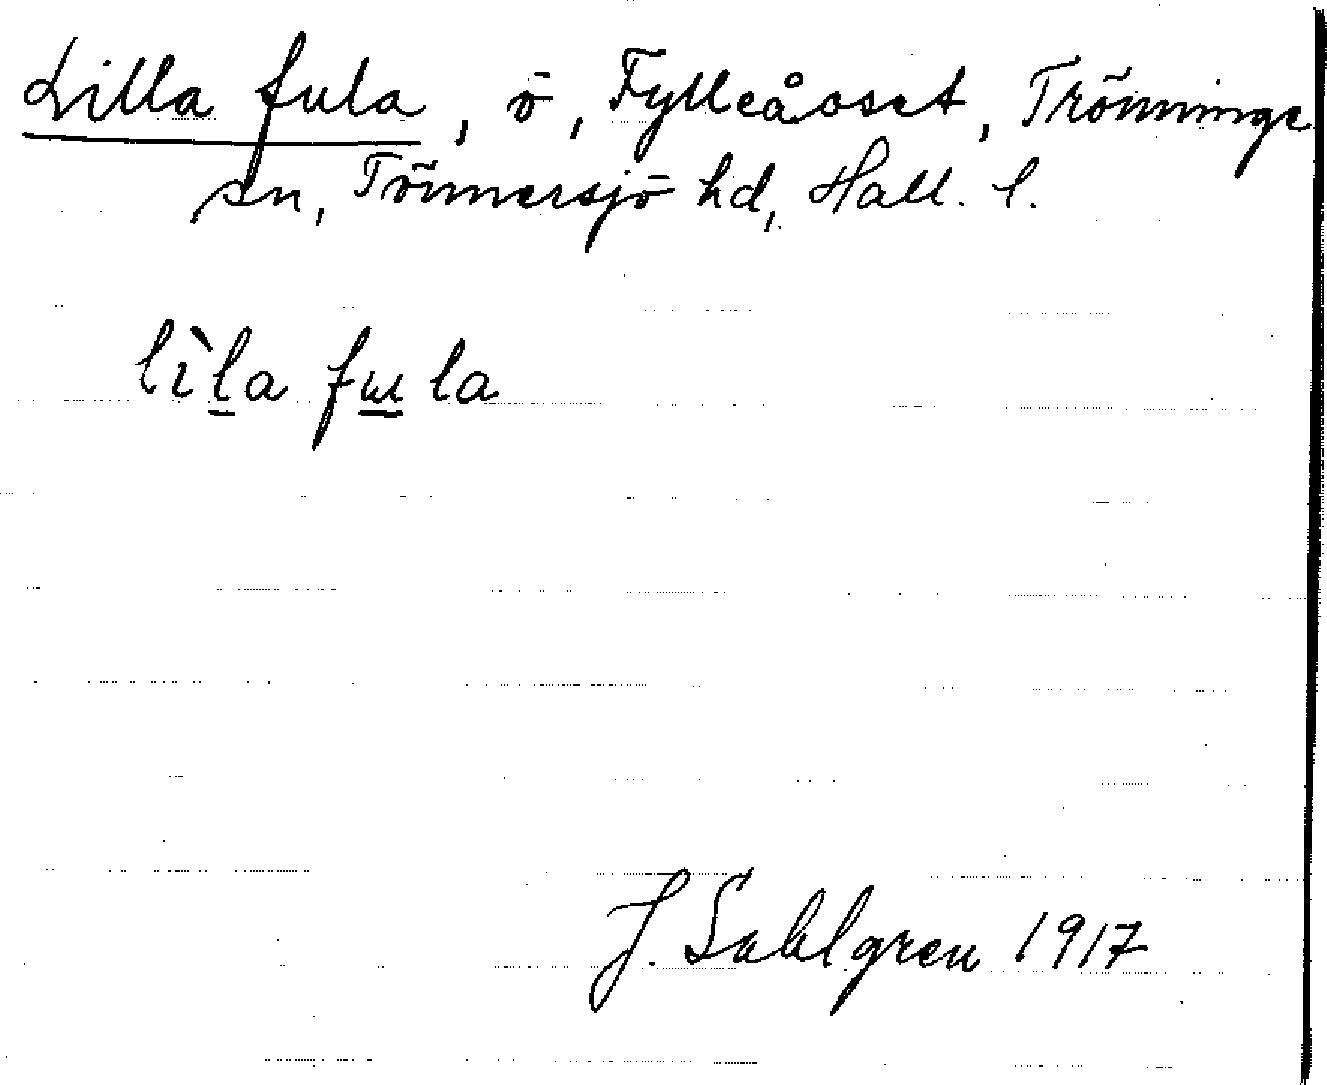 Lilla fula, ö, Fylleåoset, Trönninge
sn, Tönnersjö hd, Hall. l.
lìl̲a fɯ̲la
J. Sahlgren 1917